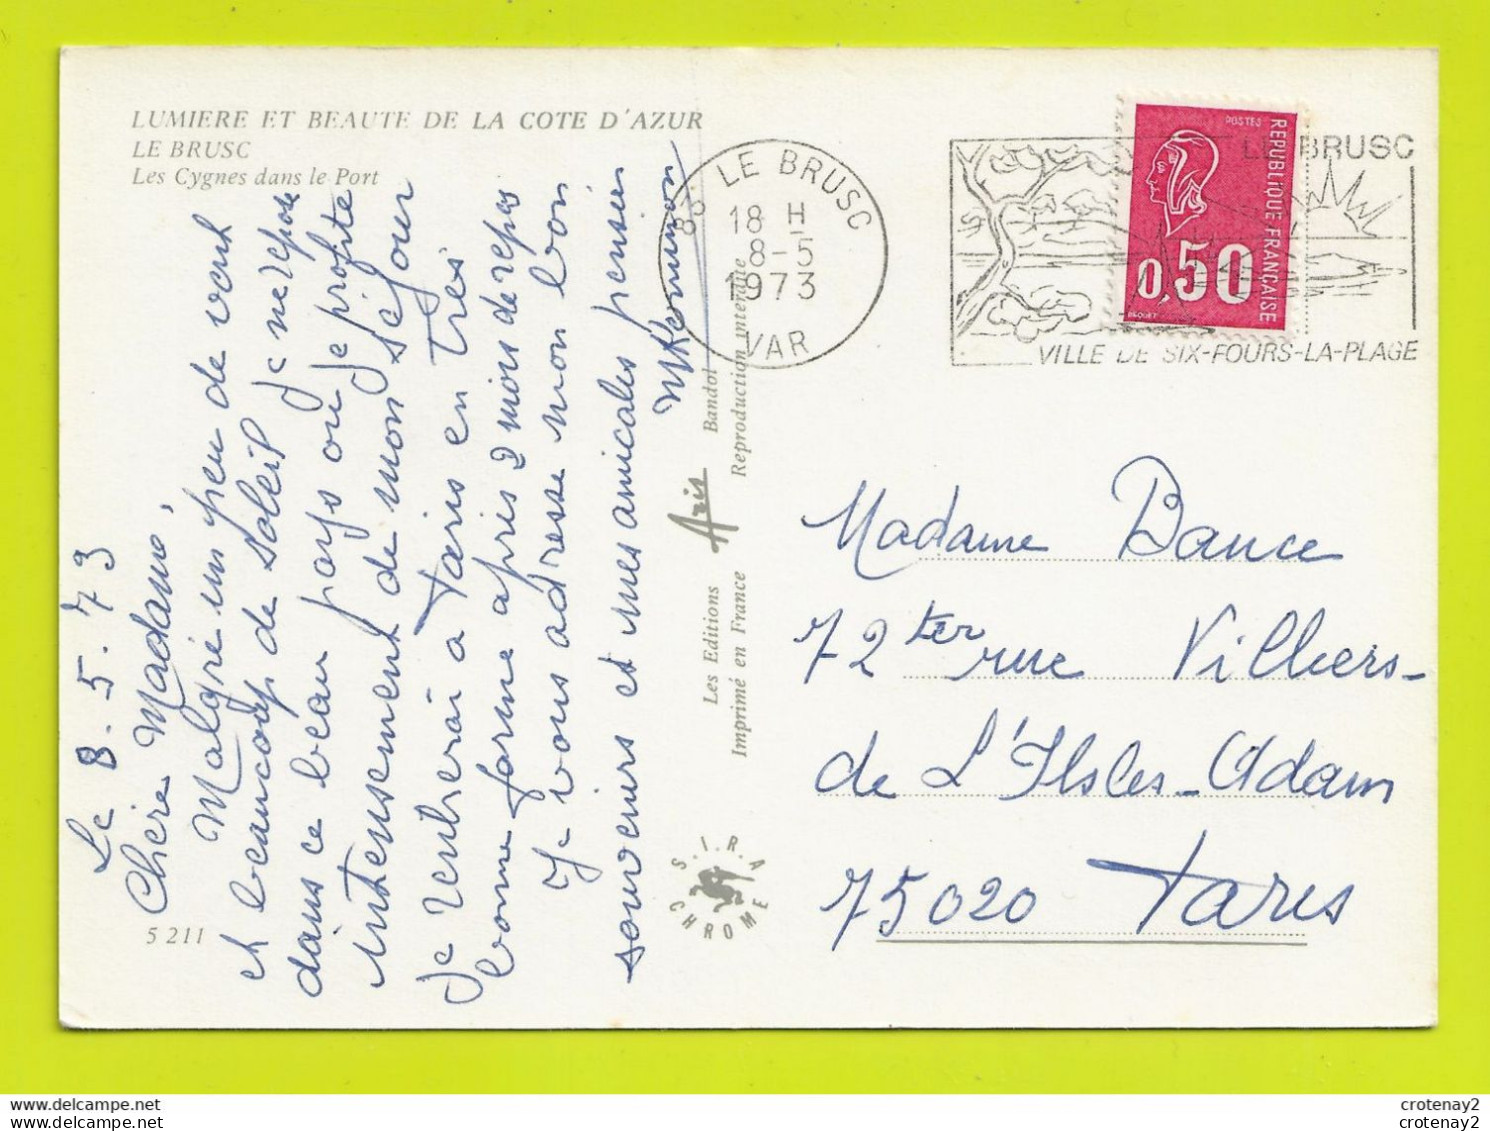 LUMIERE ET BEAUTE DE LA COTE D'AZUR
LE BRUSC
Les Cygnes dans le Port
Le 8.5.73
Chère Madame,
Malgré un peu de vent
et beaucoup de soleil je me repose
dans ce beau pays où je profite
intensement de mon séjour
Je rentrerai à Paris en très
bonne forme après 2 mois de repos
Je vous adresse mon bon
souvenirs et mes amicales pensées
5 211
Les Editions Aris Bandol
Imprimé en France Reproduction interdite
S.I.R.A
CHROME
83 LE BRUSC
18 H
8-5
1973
VAR
LE BRUSC
VILLE DE SIX-FOURS-LA-PLAGE
POSTES
REPUBLIQUE FRANÇAISE
0,50
BEQUET
Madame Bance
72 ter rue Villiers-
de L'Isles-Adam
75020 Paris
delcampe.net
crotenay2
delcampe.net
crotenay2